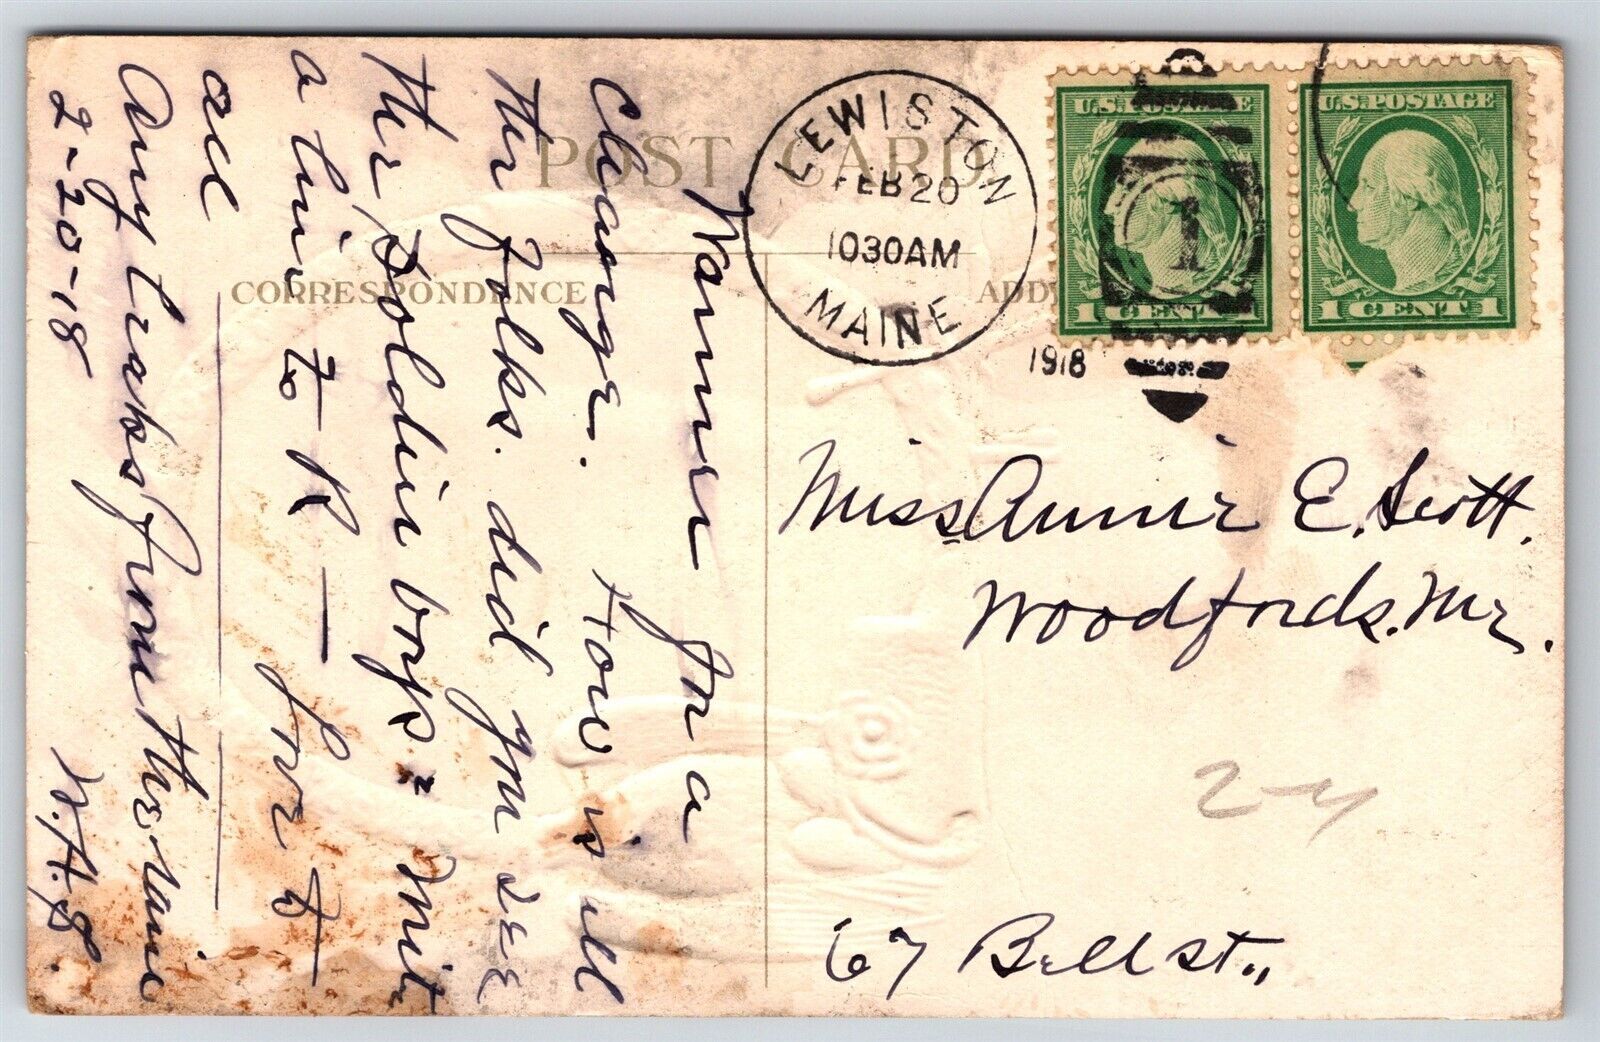 POST CARD
CORRESPONDENCE
ADD
LEWISTON
FEB 20
1030AM
MAINE
1918
1
U.S. POSTAGE
1 CENT 1
U.S. POSTAGE
1 CENT 1
Miss Annie E. Scott.
Woodfords. Me.
67 Bell st.,
2-4
Warmer In a
Change. How is all
the folks. did you see
the Soldier boys: Write
a line to R — for I
all
Any Craks from the
2-20-18